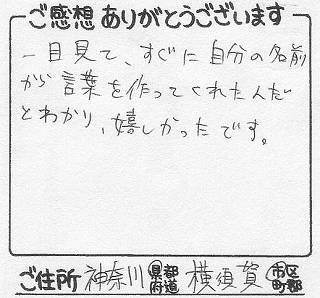 ご感想ありがとうございます
一目見て、すぐに自分の名前
から言葉を作ってくれた人だ
とわかり、嬉しかったです。
ご住所 神奈川 県都府道 横須賀 市区町郡